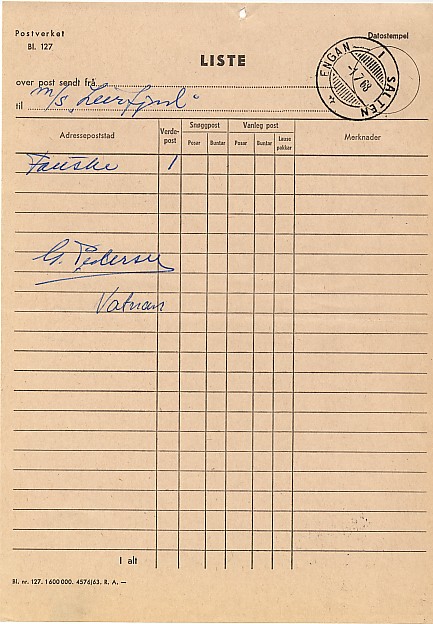 Postverket
Bl. 127
Datostempel
LISTE
ENGAN I SALTEN
-1.7.68
over post sendt frå
til m/s "Leirfjord"
Adressepoststad
Verde-post
Snøggpost
Vanleg post
Merknader
Posar
Buntar
Posar
Buntar
Lause pakkar
Fauske 1
G. Pedersen
Vatnan
I alt
Bl. nr. 127. 1 600 000. 4576/63. R. A. —